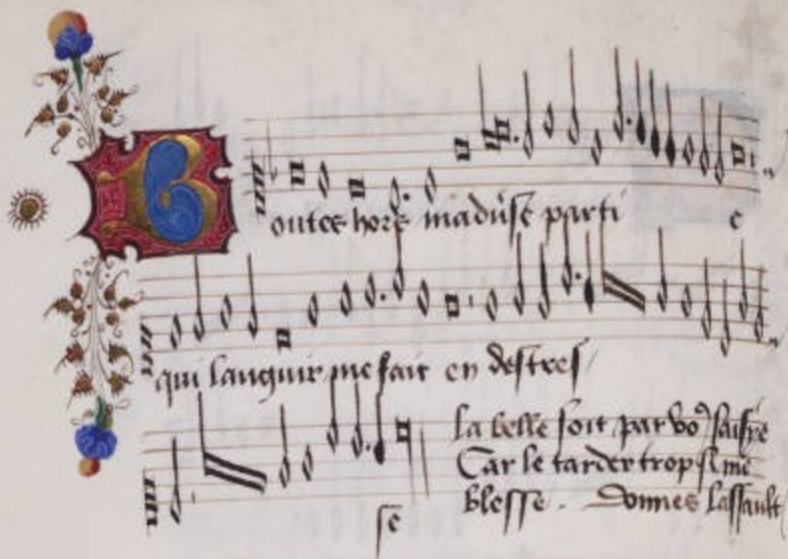 Boutes hors madure parti e
qui languir me fait en destres
se
la belle soit par voꝰ saisye
Car le tarder trop si me
blesse . Donnes lassault